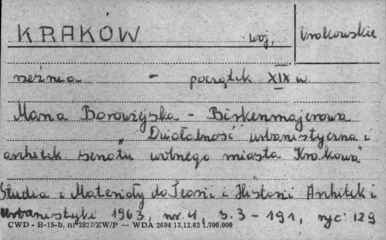 KRAKÓW woj. krakowskie
rzeźnia - początek XIX w
Maria Borowiejska - Birkenmajerowa
"Działalność urbanistyczna i
archit̨ek senatu wolnego miasta Krakowa"
Studia i Materiały do Teorii i Historii Architek i
Urbanistyki 1963, nr. 4, s. 3 - 191, ryc: 129
CWD - B-15-b, nr 2827/ZW/P — WDA 2694 13.12.62 1.700.000